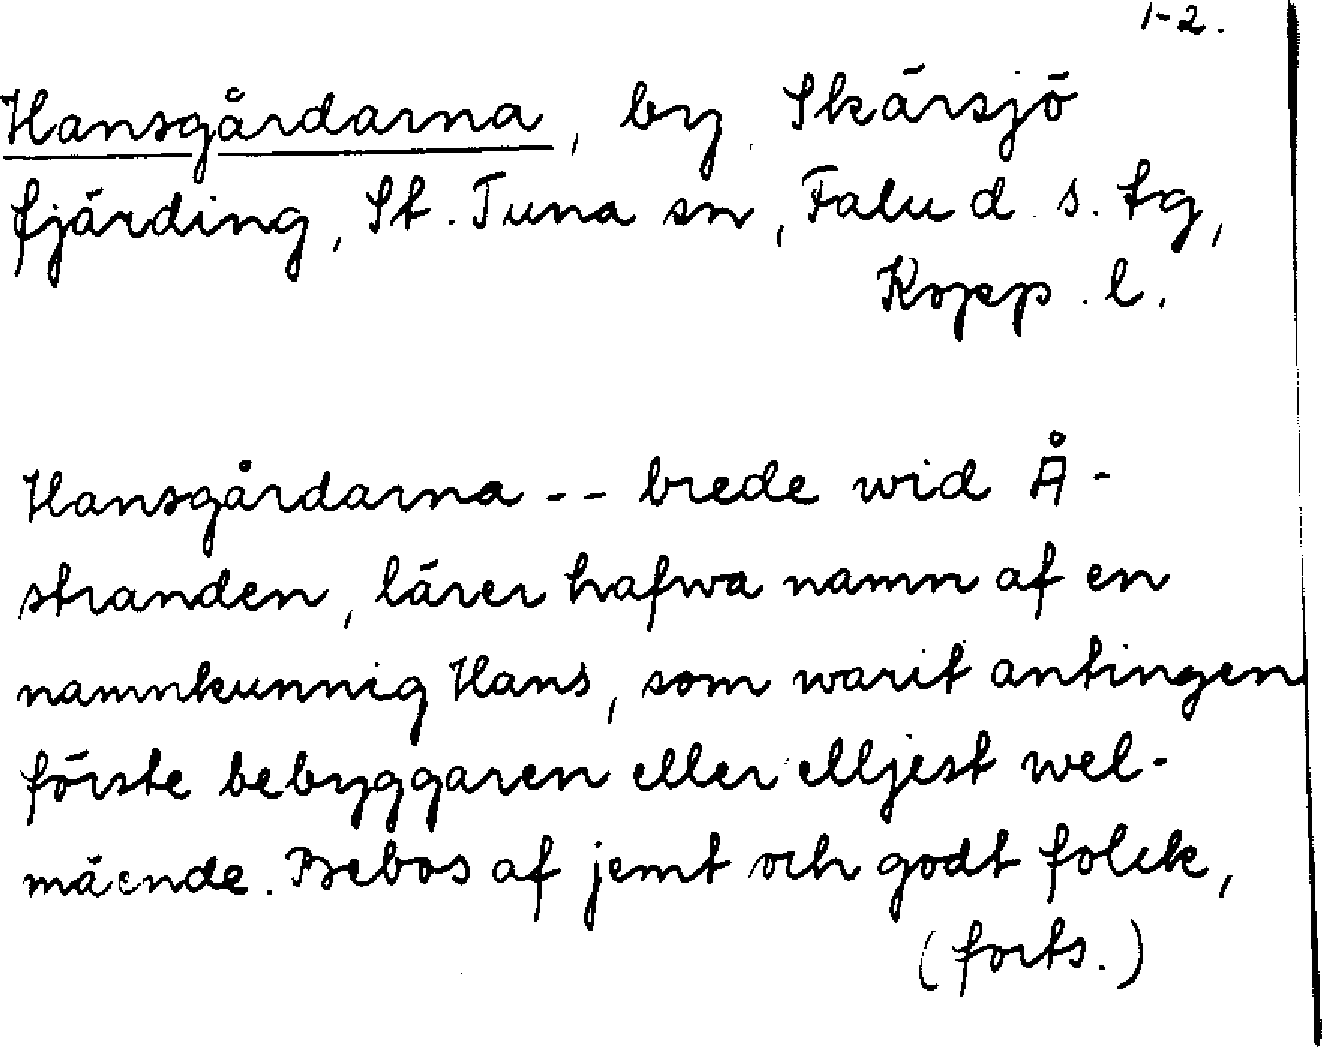 1-2.
Hansgårdarna, by Skärsjö
fjärding, St. Tuna sn, Falu d. s. tg,
Kopp. l.
Hansgårdarna -- brede wid Å-
stranden, lärer hafwa namn af en
namnkunnig Hans, som warit antingen
förste bebyggaren eller elljest wel-
mående. Bebos af jemt och godt folck,
(forts.)